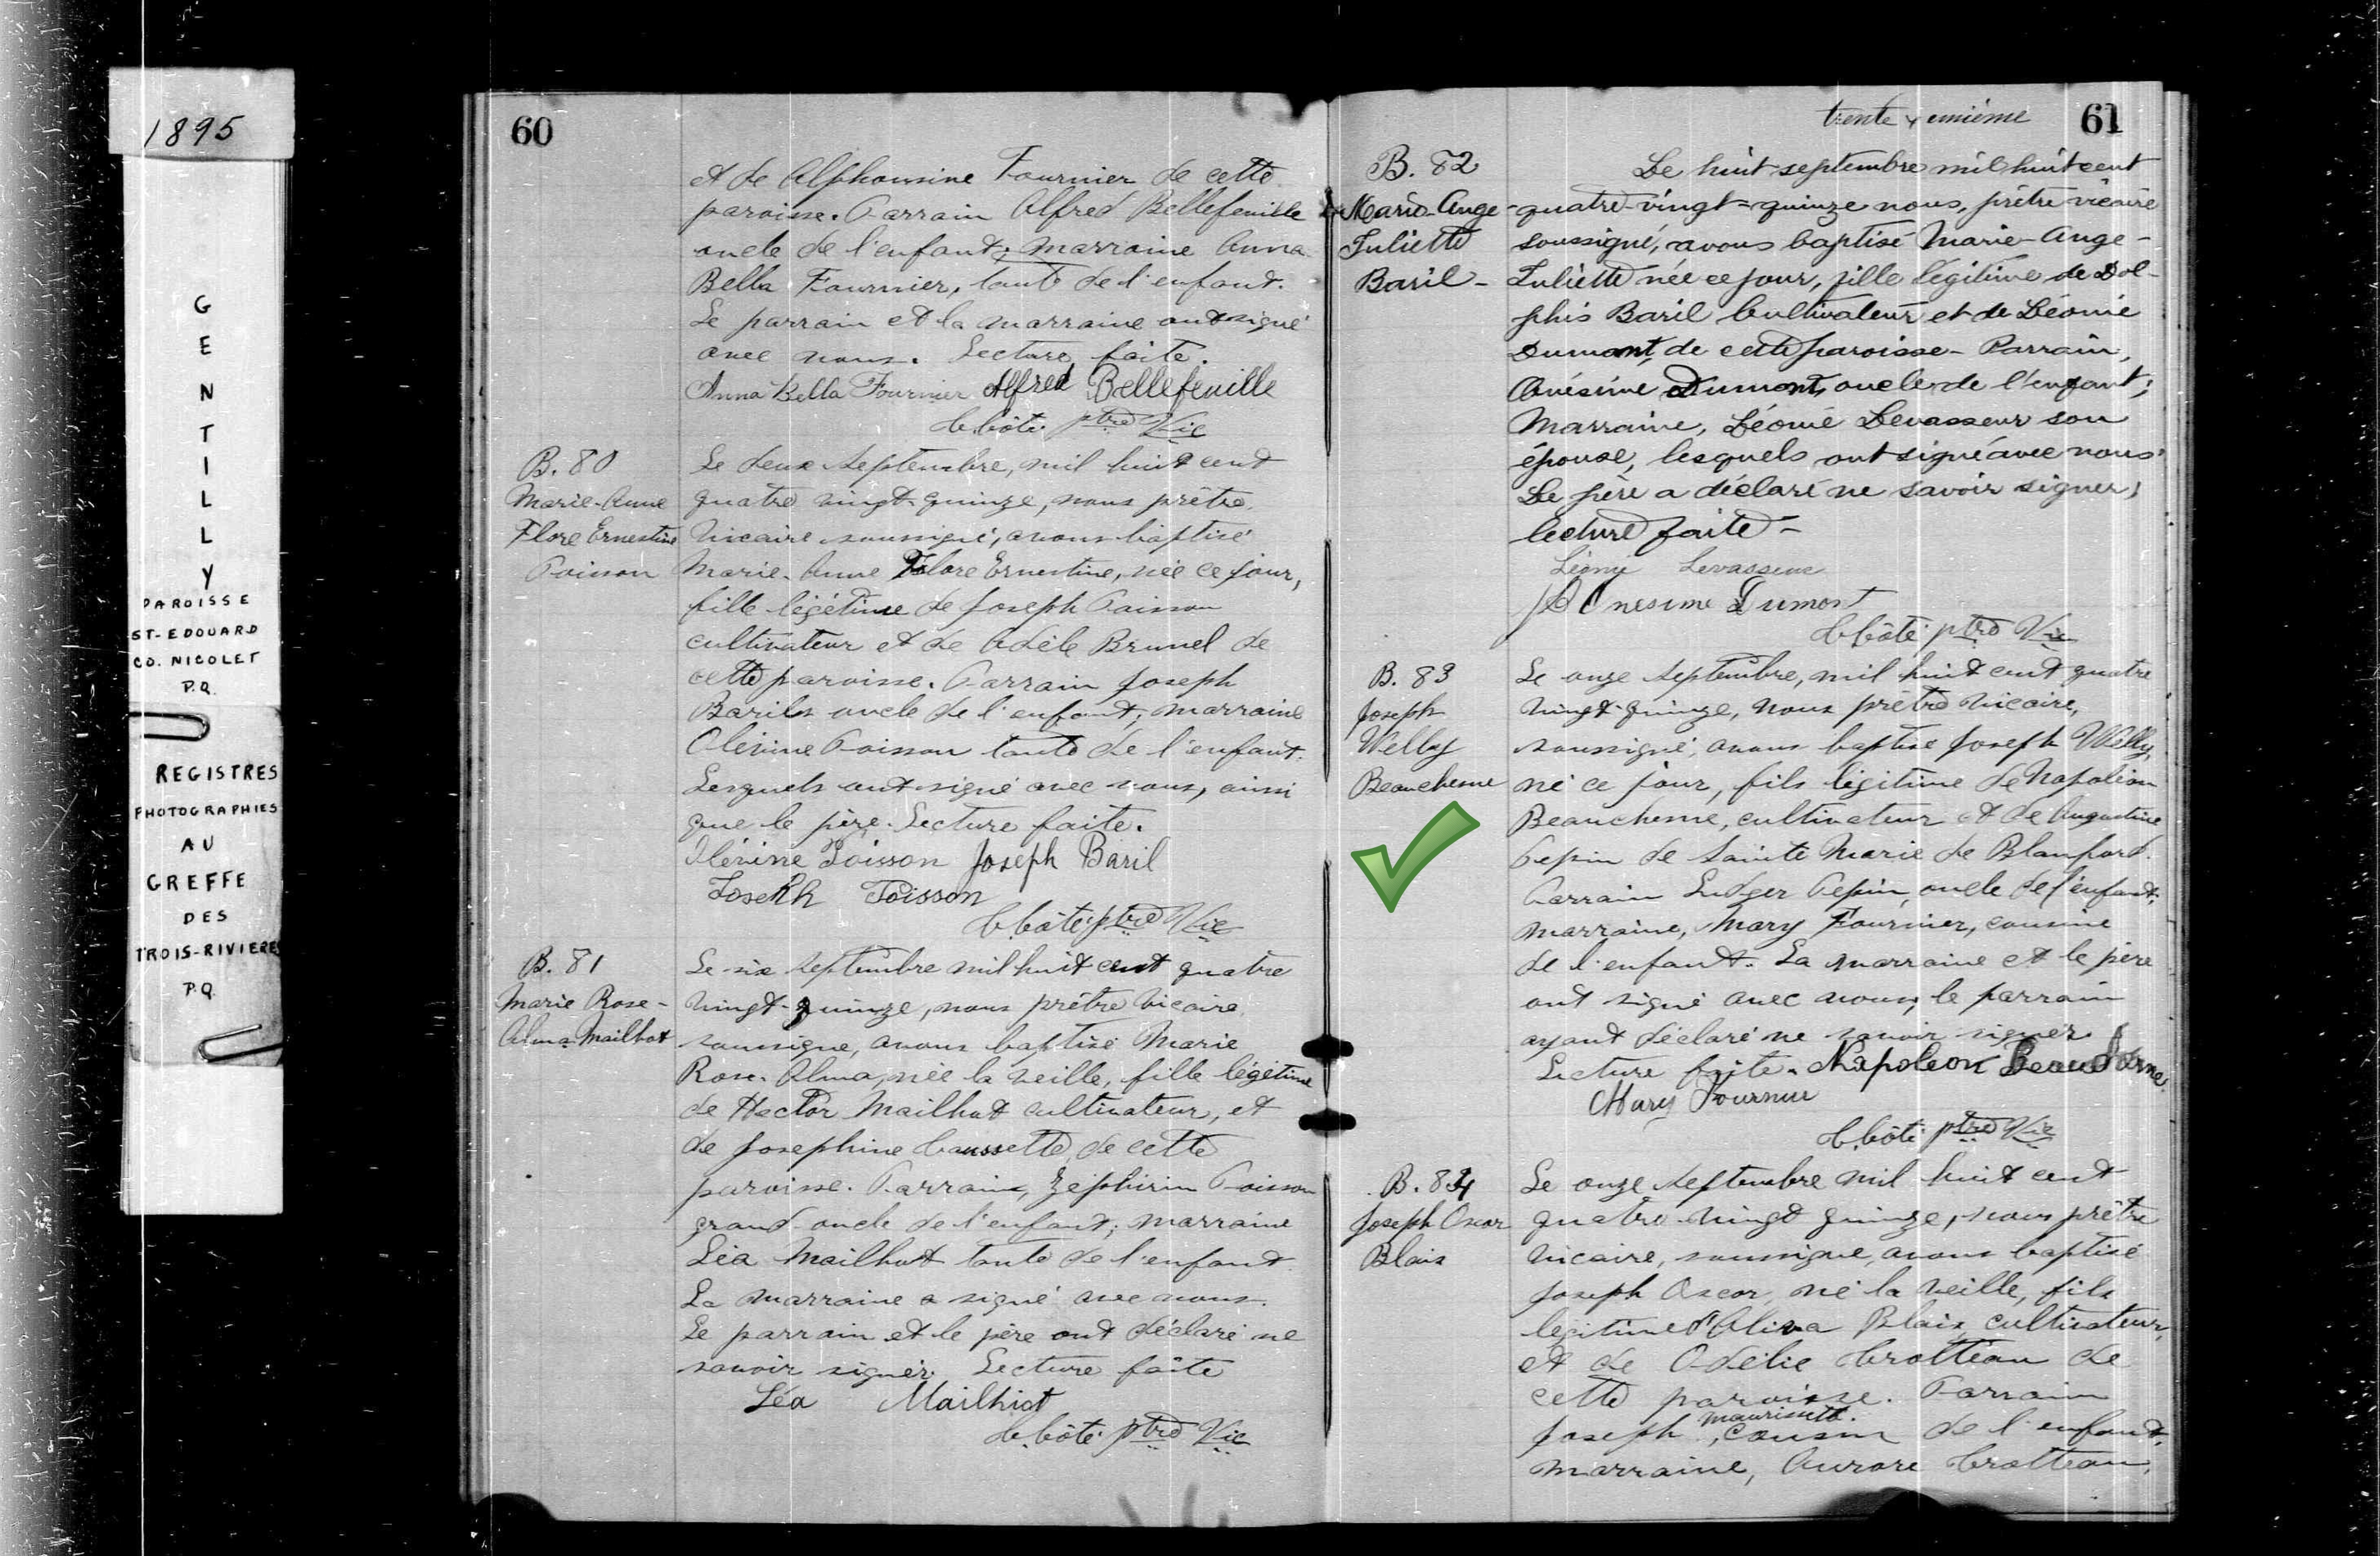 1895
G
E
N
T
I
L
L
Y
PAROISSE
ST-EDOUARD
CO. NICOLET
P.Q.
REGISTRES
PHOTOGRAPHIES
AU
GREFFE
DES
TROIS-RIVIERES
P.Q.
60
et de Alphonsine Fournier de cette
paroisse. Parrain Alfred Bellefeuille
oncle de l'enfant; marraine Anna
Bella Fournier, tante de l'enfant.
Le parrain et la marraine ont signé
avec nous. Lecture faite.
Anna Bella Fournier Alfred Bellefeuille
Côté ptre Vic
B. 80
Marie-Anne
Flore Ernestine
Poisson
Le deux septembre, mil huit cent
quatre vingt-quinze, nous prêtre
vicaire soussigné, avons baptisé
Marie-Anne Flore Ernestine, née ce jour,
fille légitime de Joseph Poisson
cultivateur et de Adèle Brunel de
cette paroisse. Parrain Joseph
Baril oncle de l'enfant; marraine
Olérine Poisson tante de l'enfant.
Lesquels ont signé avec nous, ainsi
que le père. Lecture faite.
Olérine Poisson Joseph Baril
Joseph Poisson
Côté ptre Vic
B. 81
Marie Rose-
Alma Mailhot
Le six septembre mil huit cent quatre
vingt-quinze, nous prêtre vicaire
soussigné, avons baptisé Marie
Rose-Alma, née la veille, fille légitime
de Hector Mailhot cultivateur, et
de Josephine Caussette, de cette
paroisse. Parrain, Zéphirin Poisson
grand-oncle de l'enfant; marraine
Léa Mailhot tante de l'enfant.
La marraine a signé avec nous.
Le parrain et le père ont déclaré ne
savoir signer. Lecture faite
Léa Mailhiot
Côté ptre Vic
trente & unième
61
B. 82
Marie-Ange-
Juliette
Baril-
Le huit septembre mil huit cent
quatre-vingt-quinze nous, prêtre vicaire
soussigné, avons baptisé Marie-Ange-
Juliette née ce jour, fille légitime de Dol-
phis Baril Cultivateur et de Léonie
Dumont, de cette paroisse- Parrain,
Onésime Dumont, oncle de l'enfant;
Marraine, Léonie Levasseur son
épouse, lesquels ont signé avec nous.
Le père a déclaré ne savoir signer;
lecture faite-
Léonie Levasseur
Onesime Dumont
Côté ptre Vic
B. 83
Joseph
Welly
Beauchesne
Le onze septembre, mil huit cent quatre
vingt-quinze, nous prêtre vicaire,
soussigné, avons baptisé Joseph Welly,
né ce jour, fils légitime de Napoléon
Beauchesne, cultivateur et de Augustine
Pepin de Sainte Marie de Blanford.
Parrain Ludger Pepin, oncle de l'enfant;
marraine, Mary Fournier, cousine
de l'enfant. La marraine et le père
ont signé avec nous, le parrain
ayant déclaré ne savoir signer
Lecture faite. Napoleon Beauchesne
Mary Fournier
Côté ptre Vic
B. 84
Joseph Oscar
Blais
Le onze septembre mil huit cent
quatre-vingt quinze, nous prêtre
vicaire, soussigné, avons baptisé
Joseph Oscar, né la veille, fils
légitime d'Oliva Blais, cultivateur,
et de Odélie Crotteau de
cette paroisse. Parrain
Joseph cousin de l'enfant,
marraine, Aurore Crotteau,